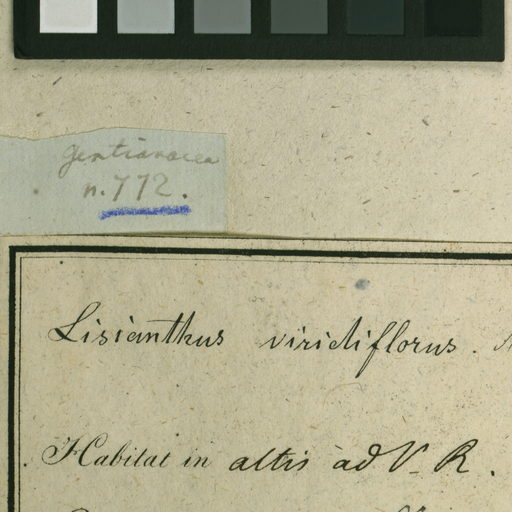 gentianacea
n. 772.
Lisianthus viridiflorus.
Habitat in altis ad V. R.